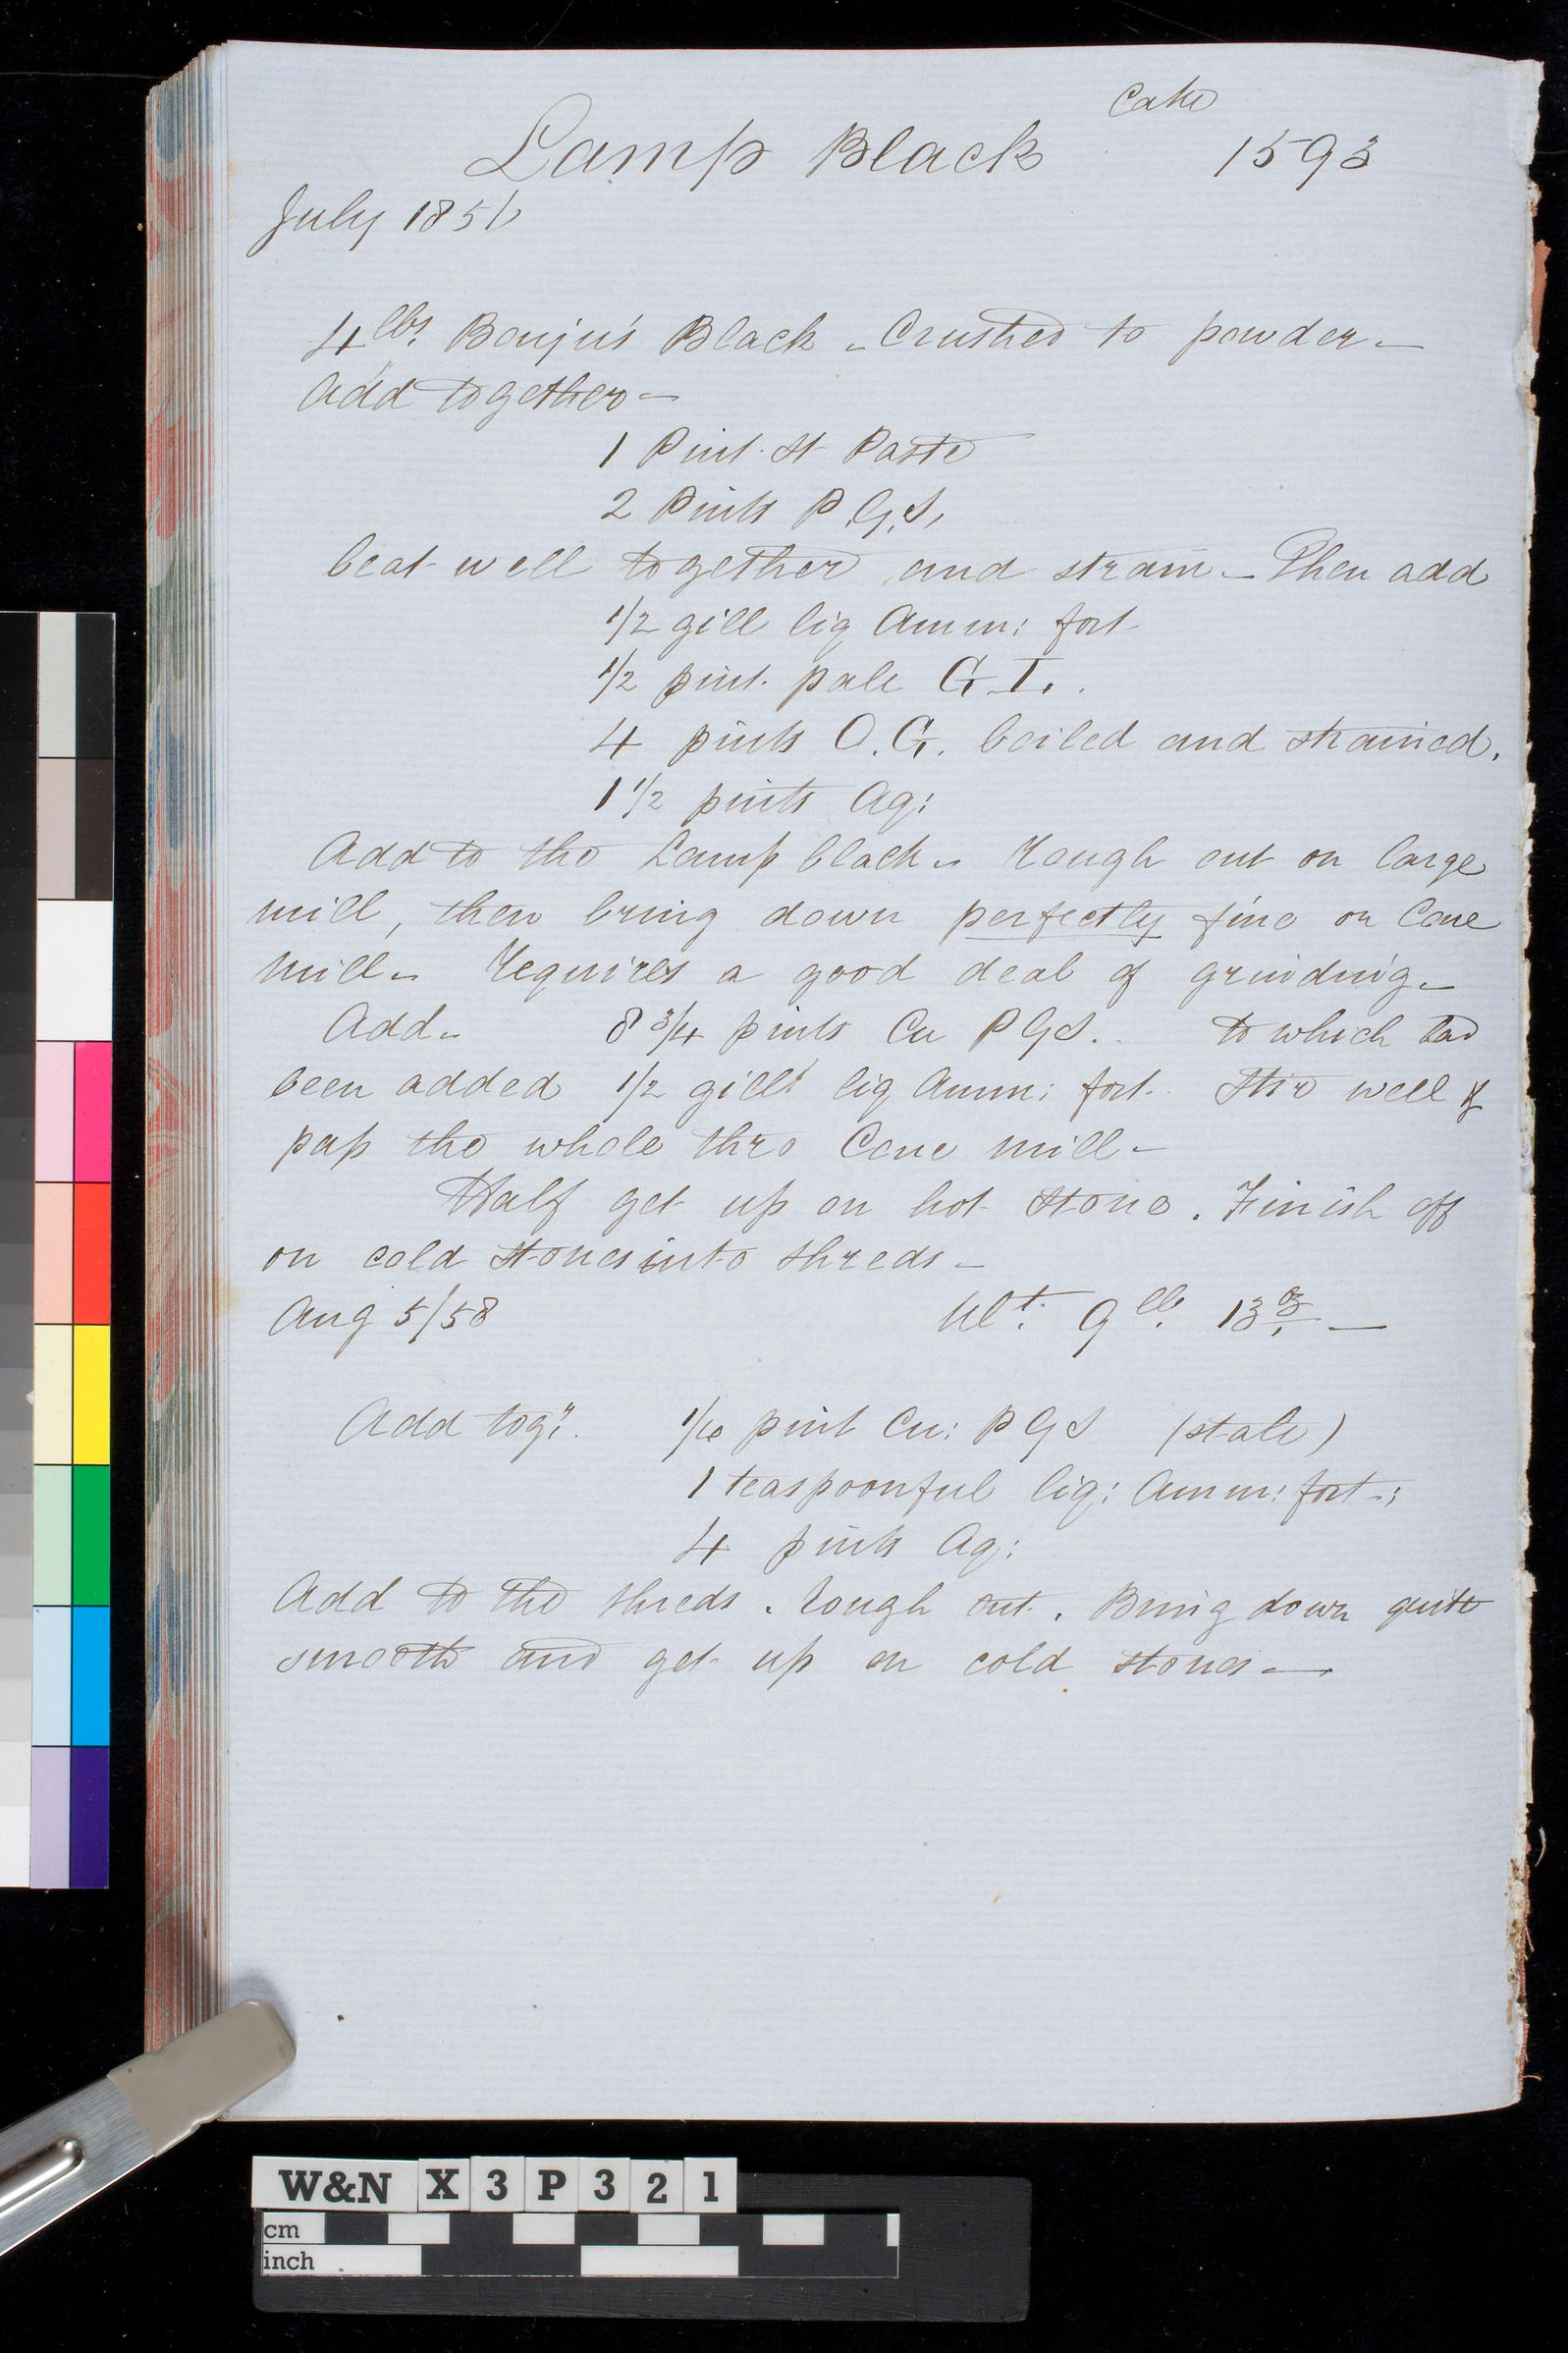 Cake
Lamp Black 1593
July 1856
4 lbs. Bouju's Black - Crushed to powder -
Add together -
1 Pint St Paste
2 Pints P.G.S,
beat well together and strain - Then add
1/2 gill liq Amm: fort
1/2 pint pale G.I.
4 pints O.G. boiled and strained.
1 1/2 pints Aq:
Add to the Lamp black - Rough out on large
mill, then bring down perfectly fine on Cone
Mill - Requires a good deal of grinding -
Add - 8 3/4 pints Cu PGS. to which had
been added 1/2 gill liq Amm: fort. Stir well &
pass the whole thro Cone mill -
Half get up on hot stone. Finish off
on cold stones into shreds -
Aug 5/58 Wt. 9 lb. 13 oz -
Add togr. pint Cu: PGS (stale)
1 teaspoonful liq: Amm: fort -:
4 pints Aq:
Add to the shreds. rough out. Bring down quite
smooth and get up on cold stones -
W&N X3P321
cm
inch